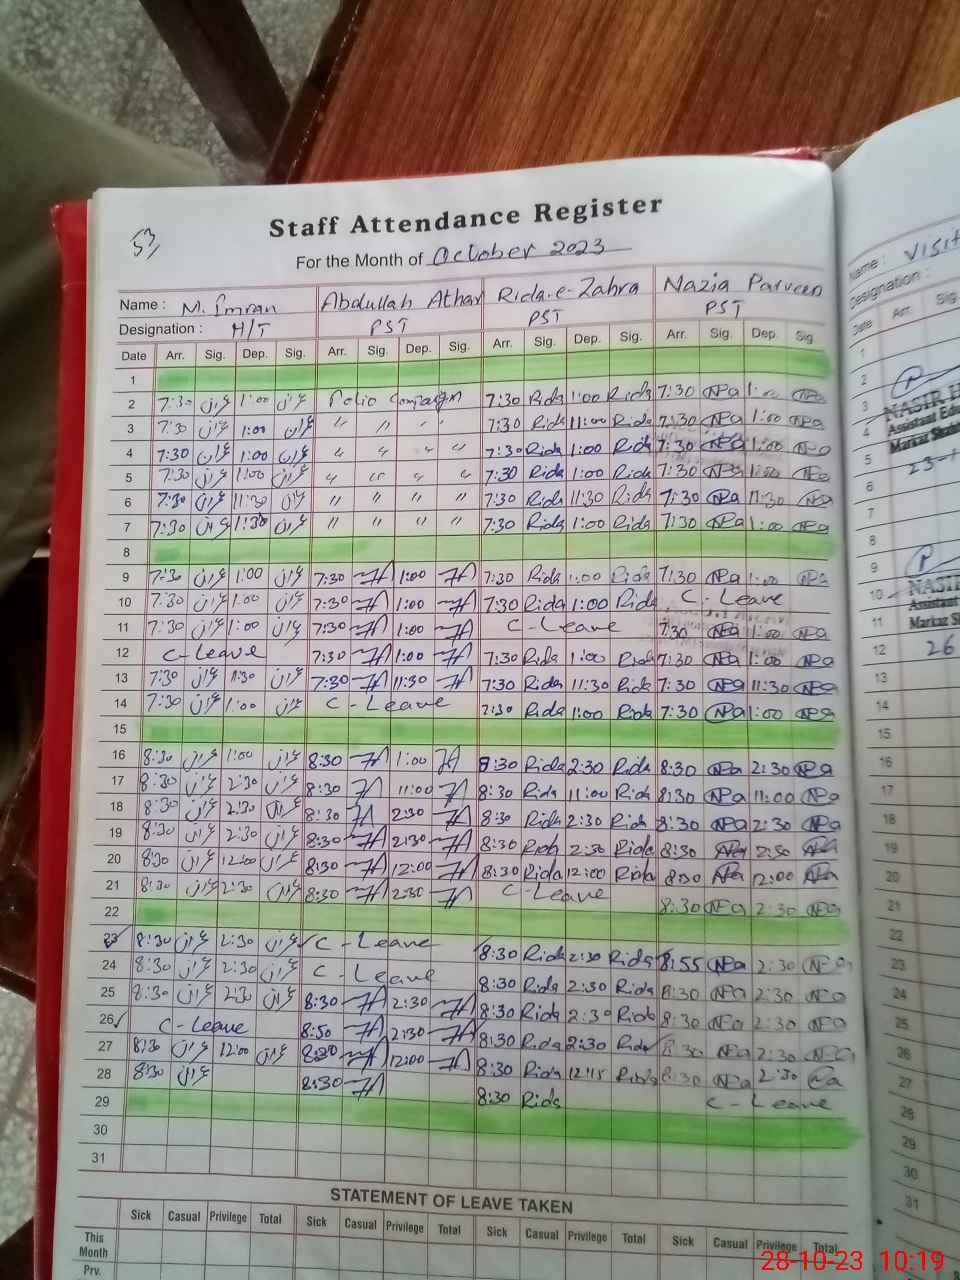 53
Staff Attendance Register
For the Month of October 2023
Name : M. Imran Abdullah Athar Rida-e-Zahra Nazia Parveen
Designation : H/T PST PST PST
Date Arr. Sig. Dep. Sig. Arr. Sig. Dep. Sig. Arr. Sig. Dep. Sig. Arr. Sig. Dep. Sig
1
2 7:30 عمران 1:00 عمران Polio Campaign 7:30 Rida 1:00 Rida 7:30 NPa 1:00 NPa
3 7:30 عمران 1:00 عمران " " " " 7:30 Rida 11:00 Rida 7:30 NPa 1:00 NPa
4 7:30 عمران 1:00 عمران " " " " 7:30 Rida 1:00 Rida 7:30 NPa 1:00 NPa
5 7:30 عمران 1:00 عمران " " " " 7:30 Rida 1:00 Rida 7:30 NPa 1:00 NPa
6 7:30 عمران 11:30 عمران " " " " 7:30 Rida 11:30 Rida 7:30 NPa 11:30 NPa
7 7:30 عمران 1:30 عمران " " " " 7:30 Rida 1:00 Rida 7:30 NPa 1:00 NPa
8
9 7:30 عمران 1:00 عمران 7:30 1:00 7:30 Rida 1:00 Rida 7:30 NPa 1:00 NPa
10 7:30 عمران 1:00 عمران 7:30 1:00 7:30 Rida 1:00 Rida C-Leave
11 7:30 عمران 1:00 عمران 7:30 1:00 C-Leave 7:30 NPa 1:00 NPa
12 C-Leave 7:30 1:00 7:30 Rida 1:00 Rida 7:30 NPa 1:00 NPa
13 7:30 عمران 11:30 عمران 7:30 11:30 7:30 Rida 11:30 Rida 7:30 NPa 11:30 NPa
14 7:30 عمران 1:00 عمران C-Leave 7:30 Rida 1:00 Rida 7:30 NPa 1:00 NPa
15
16 8:30 عمران 1:00 عمران 8:30 1:00 8:30 Rida 2:30 Rida 8:30 NPa 2:30 NPa
17 8:30 عمران 2:30 عمران 8:30 11:00 8:30 Rida 11:00 Rida 8:30 NPa 11:00 NPa
18 8:30 عمران 2:30 عمران 8:30 2:30 8:30 Rida 2:30 Rida 8:30 NPa 2:30 NPa
19 8:30 عمران 2:30 عمران 8:30 2:30 8:30 Rida 2:30 Rida 8:30 NPa 2:30 NPa
20 8:30 عمران 12:00 عمران 8:30 12:00 8:30 Rida 12:00 Rida 8:30 NPa 12:00 NPa
21 8:30 عمران 2:30 عمران 8:30 2:30 C-Leave 8:30 NPa 2:30 NPa
22
23 8:30 عمران 2:30 عمران C-Leave 8:30 Rida 2:30 Rida 8:55 NPa 2:30 NPa
24 8:30 عمران 2:30 عمران C-Leave 8:30 Rida 2:30 Rida 8:30 NPa 2:30 NPa
25 8:30 عمران 2:30 عمران 8:30 2:30 8:30 Rida 2:30 Rida 8:30 NPa 2:30 NPa
26 C-Leave 8:50 2:30 8:30 Rida 2:30 Rida 8:30 NPa 2:30 NPa
27 8:30 عمران 12:00 عمران 8:30 12:00 8:30 Rida 12:15 Rida 8:30 NPa 2:30 NPa
28 8:30 عمران 8:30 8:30 Rida C-Leave
29
30
31
STATEMENT OF LEAVE TAKEN
Sick Casual Privilege Total Sick Casual Privilege Total Sick Casual Privilege Total Sick Casual Privilege Total
This
Month
Prv.
Name : VISIT
Designation :
Date Arr. Sig
1
2
3 NASIR H
4 Assistant Edu
5 Markaz Shah
23-1
6
7
8
9
10 NASIR
11 Assistant
12 Markaz Sh
26
13
14
15
16
17
18
19
20
21
22
23
24
25
26
27
28
29
30
31
28-10-23 10:19